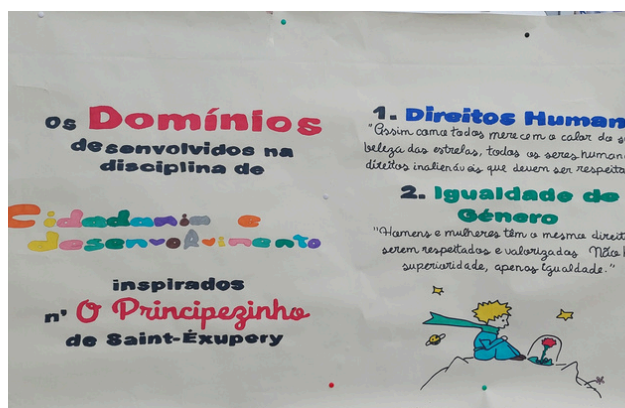 Os Domínios
desenvolvidos na
disciplina de
Cidadania e
desenvolvimento
inspirados
n' O Principezinho
de Saint-Éxupery
1. Direitos Human
"Assim como todos merecem o calor do s
beleza das estrelas, todos os seres human
direitos inalienáveis que devem ser respeita
2. Igualdade de
Género
"Homens e mulheres têm o mesmo direit
serem respeitados e valorizados Não h
superioridade, apenas igualdade."